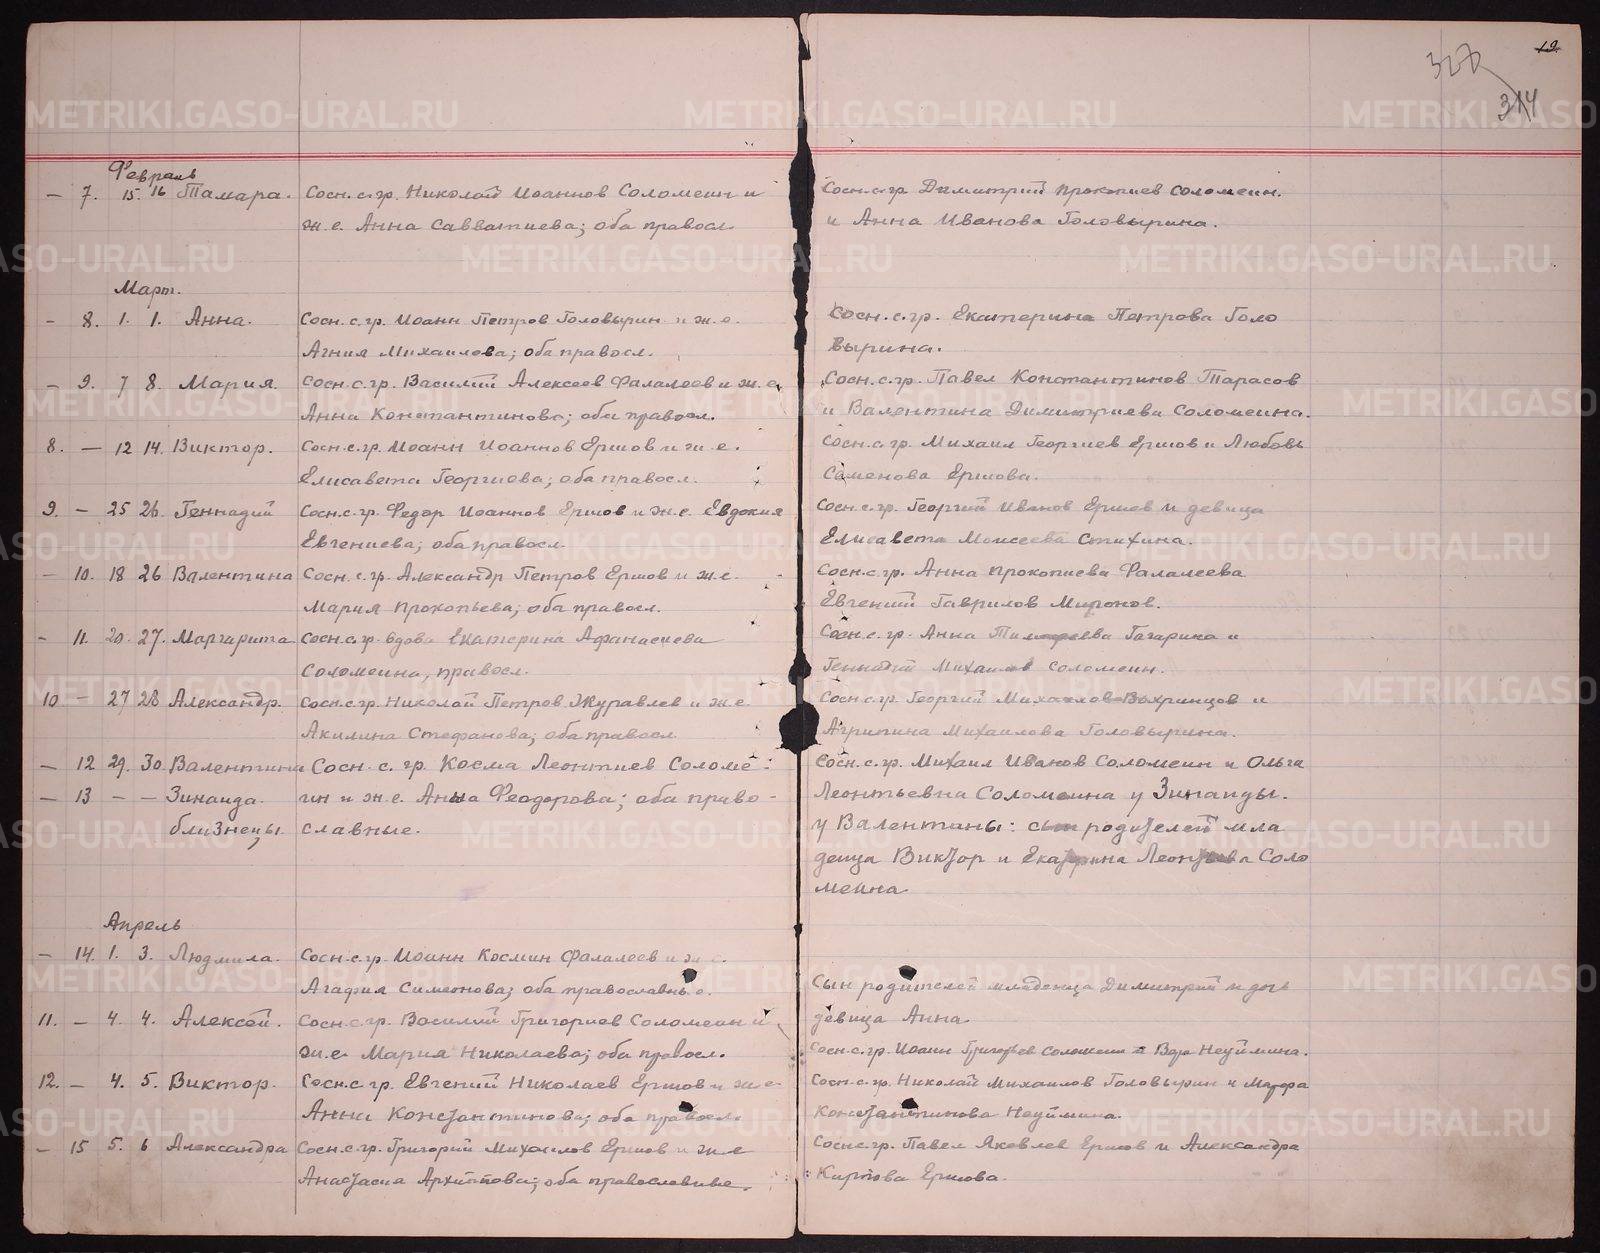 19.
327
314
Февраль
— 7. 15. 16 Тамара. Сосн. с. гр. Николай Иоаннов Соломеин и
ж. е. Анна Савватиева; оба правосл.
Сосн. с. гр. Димитрий Прокопиев Соломеин.
и Анна Иванова Головырина.
Март.
— 8. 1. 1. Анна. Сосн. с. гр. Иоанн Петров Головырин и ж. е.
Агния Михаилова; оба правосл.
Сосн. с. гр. Екатерина Петрова Голо
вырина.
— 9. 7 8. Мария. Сосн. с. гр. Василий Алексеев Фалалеев и ж. е.
Анна Константинова; оба правосл.
Сосн. с. гр. Павел Константинов Тарасов
и Валентина Димитриева Соломеина.
8. — 12 14. Виктор. Сосн. с. гр. Иоанн Иоаннов Ершов и ж. е.
Елисавета Георгиева; оба правосл.
Сосн. с. гр. Михаил Георгиев Ершов и Любовь
Семенова Ершова.
9. — 25 26. Геннадий Сосн. с. гр. Федор Иоаннов Ершов и ж. е. Евдокия
Евгениева; оба правосл.
Сосн. с. гр. Георгий Иванов Ершов и девица
Елисавета Моисеева Стихина.
— 10. 18 26 Валентина Сосн. с. гр. Александр Петров Ершов и ж. е.
Мария Прокопьева; оба правосл.
Сосн. с. гр. Анна Прокопиева Фалалеева
Евгений Гаврилов Миронов.
— 11. 20. 27. Маргарита Сосн. с. гр. вдова Екатерина Афанасиева
Соломеина, правосл.
Сосн. с. гр. Анна Тимофеева Гагарина и
Геннадий Михаилов Соломеин.
10 — 27 28 Александр. Сосн. с. гр. Николай Петров Журавлев и ж. е.
Акилина Стефанова; оба правосл.
Сосн. с. гр. Георгий Михаилов Выхринцов и
Агрипина Михаилова Головырина.
— 12 29. 30. Валентина Сосн. с. гр. Косма Леонтиев Соломе-
— 13 — — Зинаида. ин и ж. е. Анна Феодорова; оба право-
близнецы. славные.
Сосн. с. гр. Михаил Иванов Соломеин и Ольга
Леонтьевна Соломеина у Зинаиды.
у Валентины: сын родителей мла
денца Виктор и Екатерина Леонтьева Соло
меина
Апрель
— 14. 1. 3. Людмила. Сосн. с. гр. Иоанн Космин Фалалеев и ж. е.
Агафия Симеонова; оба православные.
Сын родителей младенца Димитрий и дочь
девица Анна
11. — 4. 4. Алексей. Сосн. с. гр. Василий Григориев Соломеин и
ж. е. Мария Николаева; оба правосл.
Сосн. с. гр. Иоанн Григорьев Соломеин и Вера Неуймина.
12. — 4. 5. Виктор. Сосн. с. гр. Евгений Николаев Ершов и ж. е.
Анна Константинова; оба правосл.
Сосн. с. гр. Николай Михаилов Головырин и Марфа
Константинова Неуймина.
— 15 5. 6 Александра Сосн. с. гр. Григорий Михаилов Ершов и ж. е
Анастасия Архиппова; оба православные.
Сосн. с. гр. Павел Яковлев Ершов и Александра
Ершова.
METRIKI.GASO-URAL.RU